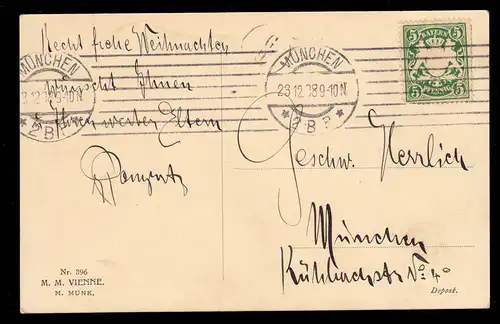 Recht frohe Weihnachten
wünscht Ihnen
Ihren werten Eltern
MÜNCHEN
23.12.08 9-10N
* 2 B P *
MÜNCHEN
23.12.08 9-10N
* 2 B P *
5 BAYERN 5
5 PFENNIG 5
Geschw. Herrlich
München
Kühbachstr No 4
Nr. 396
M. M. VIENNE.
M. MUNK.
Depost.